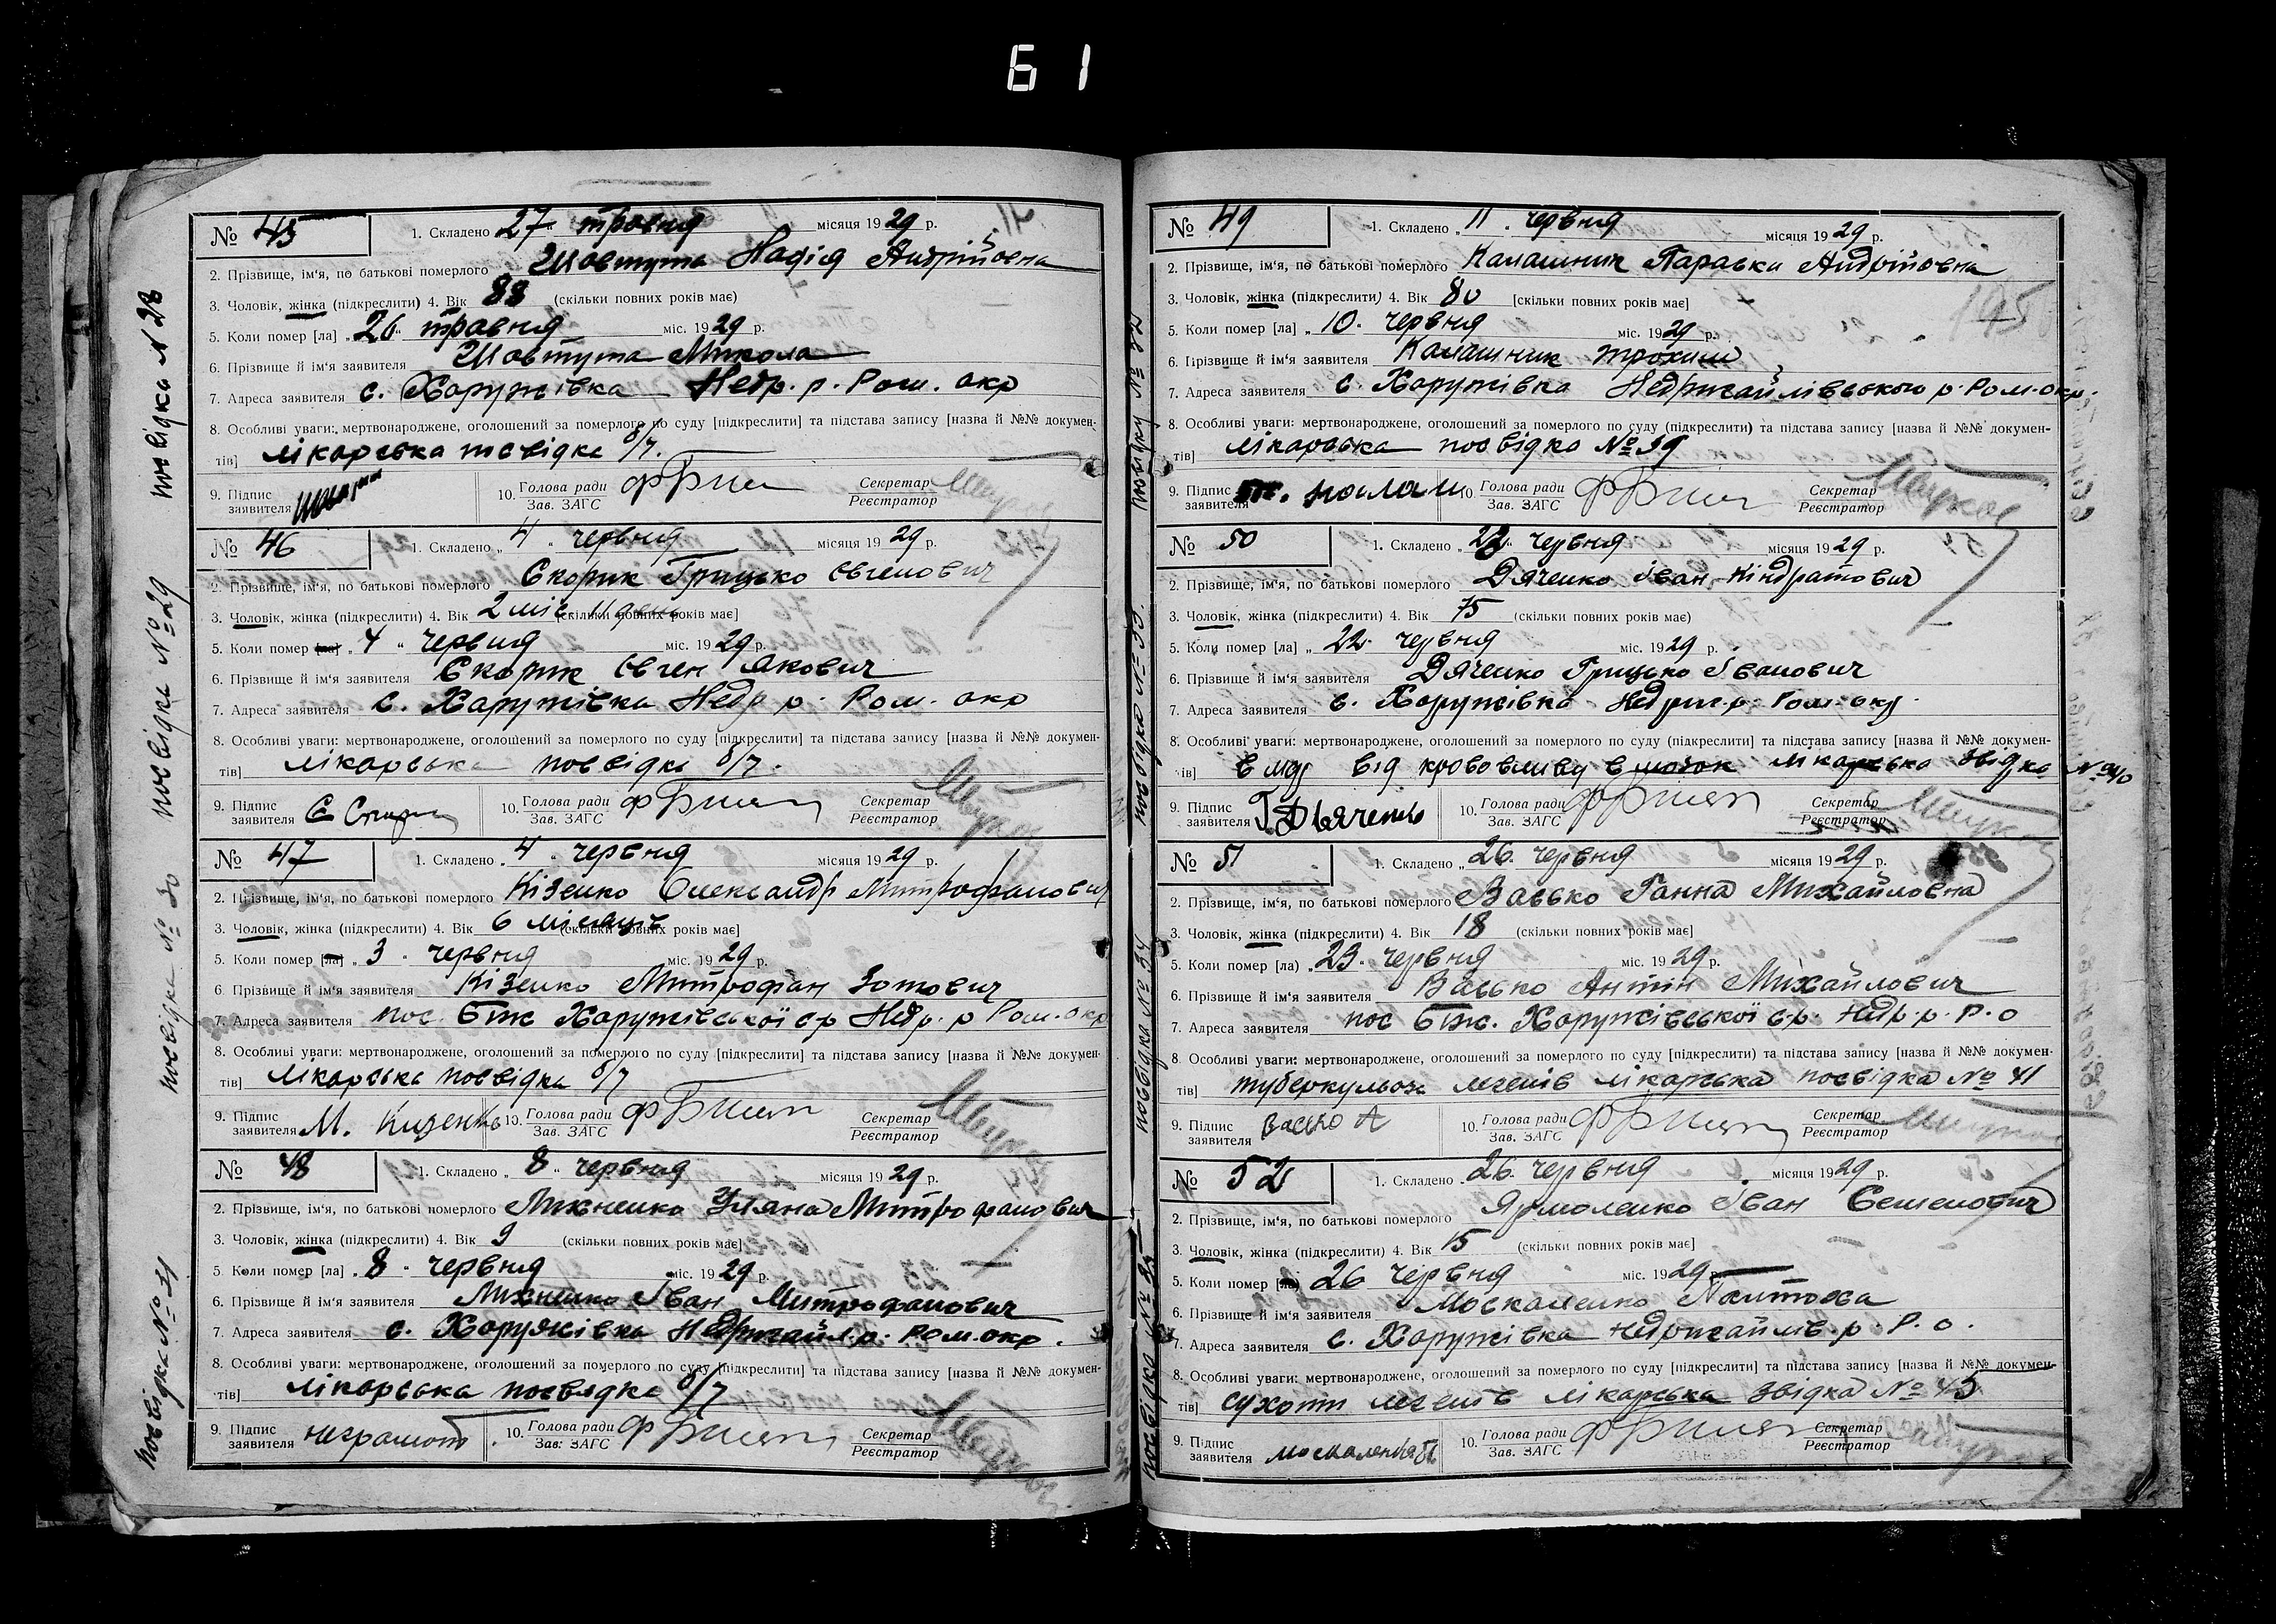 61
№ 45 1. Складено 27 травня місяця 1929 р.
2. Прізвище, ім'я, по батькові померлого Шовтута Надія Андрійовна
3. Чоловік, жінка (підкреслити) 4. Вік 88 (скільки повних років має)
5. Коли помер [ла] „26“ травня міс. 1929 р.
6. Прізвище й ім'я заявителя Шовтута Микола
7. Адреса заявителя с. Хоружівка Недр. р. Ром. окр
8. Особливі уваги: мертвонароджене, оголошений за померлого по суду [підкреслити] та підстава запису [назва й №№ докумен-
тів] лікарська посвідка б/7.
9. Підпис заявителя 10. Голова ради Зав. ЗАГС Секретар Реєстратор
№ 46 1. Складено „4“ червня місяця 1929 р.
2. Прізвище, ім'я, по батькові померлого Скорик Грицько Овгенович
3. Чоловік, жінка (підкреслити) 4. Вік 2 міс. 11 день (скільки повних років має]
5. Коли помер [ла] „4“ червня міс. 1929 р.
6. Прізвище й ім'я заявителя Скорик Овген Якович
7. Адреса заявителя с. Хоружівка Недр р. Ром. окр
8. Особливі уваги: мертвонароджене, оголошений за померлого по суду [підкреслити] та підстава запису [назва й №№ докумен-
тів] лікарська посвідка б/7.
9. Підпис заявителя 10. Голова ради Зав. ЗАГС Секретар Реєстратор
№ 47 1. Складено „4“ червня місяця 1929 р.
2. Прізвище, ім'я, по батькові померлого Кізенко Олександр Митрофанович
3. Чоловік, жінка (підкреслити) 4. Вік 6 місяців (скільки повних років має]
5. Коли помер [ла] „3“ червня міс. 1929 р.
6. Прізвище й ім'я заявителя Кізенко Митрофан Зотович
7. Адреса заявителя пос. Біж Хоружівської с р Недр. р Ром. окр
8. Особливі уваги: мертвонароджене, оголошений за померлого по суду [підкреслити] та підстава запису [назва й №№ докумен-
тів] лікарська посвідка б/7
9. Підпис заявителя М. Кизенко 10. Голова ради Зав. ЗАГС Секретар Реєстратор
№ 48 1. Складено „8“ червня місяця 1929 р.
2. Прізвище, ім'я, по батькові померлого Михненко Уляна Митрофанович
3. Чоловік, жінка (підкреслити) 4. Вік 9 (скільки повних років має]
5. Коли помер [ла] „8“ червня міс. 1929 р.
6. Прізвище й ім'я заявителя Михненко Іван Митрофанович
7. Адреса заявителя с. Хоружівка Недригайл. р. Ром. окр.
8. Особливі уваги: мертвонароджене, оголошений за померлого по суду [підкреслити] та підстава запису [назва й №№ докумен-
тів] лікарська посвядка б/7
9. Підпис заявителя неграмот 10. Голова ради Зав. ЗАГС Секретар Реєстратор
посвідка № 28
посвідка № 29
посвідка № 30
посвідка № 31
№ 49 1. Складено „11“ червня місяця 1929 р.
2. Прізвище, ім'я, по батькові померлого Калашник Параска Андрійовна
3. Чоловік, жінка (підкреслити) 4. Вік 80 [скільки повних років має]
5. Коли помер [ла] „10“ червня міс. 1929 р.
6. Прізвище й ім'я заявителя Калашник Трохим
7. Адреса заявителя с. Хоружівка Недригайлівського р. Ром. окр.
8. Особливі уваги: мертвонароджене, оголошений за померлого по суду (підкреслити) та підстава запису [назва й №№ докумен-
тів] лікарська посвідка № 39
9. Підпис заявителя 10. Голова ради Зав. ЗАГС Секретар Реєстратор
195
№ 50 1. Складено „22“ червня місяця 1929 р.
2. Прізвище, ім'я, по батькові померлого Дяченко Іван Кіндратович
3. Чоловік, жінка (підкреслити) 4. Вік 75 (скільки повних років має)
5. Коли помер [ла] „22“ червня міс. 1929 р.
6. Прізвище й ім'я заявителя Дяченко Грицько Іванович
7. Адреса заявителя с. Хоружівка Недриг. р. Ром. окр.
8. Особливі уваги: мертвонароджене, оголошений за померлого по суду (підкреслити] та підстава запису [назва й №№ докумен-
тів] від крововливу в мозок лікарська звідка № 40
9. Підпис заявителя Г Дьяченко 10. Голова ради Зав. ЗАГС Секретар Реєстратор
№ 51 1. Складено „26“ червня місяця 1929 р.
2. Прізвище, ім'я, по батькові померлого Васько Ганна Михайловна
3. Чоловік, жінка (підкреслити) 4. Вік 18 (скільки повних років має]
5. Коли помер [ла) „23“ червня міс. 1929 р.
6. Прізвище й ім'я заявителя Васько Антін Михайлович
7. Адреса заявителя пос Біж. Хоружівської с.р. Недр. р. Р. о
8. Особливі уваги: мертвонароджене, оголошений за померлого по суду [підкреслити) та підстава запису [назва й №№ докумен-
тів] туберкульоз легенів лікарська посвідка № 41
9. Підпис заявителя Васко А 10. Голова ради Зав. ЗАГС Секретар Реєстратор
№ 52 1. Складено „26“ червня місяця 1929 р.
2. Прізвище, ім'я, по батькові померлого Ярмоленко Іван Семенович
3. Чоловік, жінка (підкреслити) 4. Вік 15 (скільки повних років має]
5. Коли помер [ла] 26 червня міс. 1929 р.
6. Прізвище й ім'я заявителя Москаленко
7. Адреса заявителя с. Хоружівка Недригайлів. р. Р. о.
8. Особливі уваги: мертвонароджене, оголошений за померлого по суду [підкреслити] та підстава запису [назва й №№ докумен-
тів] сухоти легенів лікарська звідка № 45
9. Підпис заявителя Москаленко 10. Голова ради Зав. ЗАГС Секретар Реєстратор
посвідку № 32
посвідка № 33.
посвідка № 34
посвідка № 35